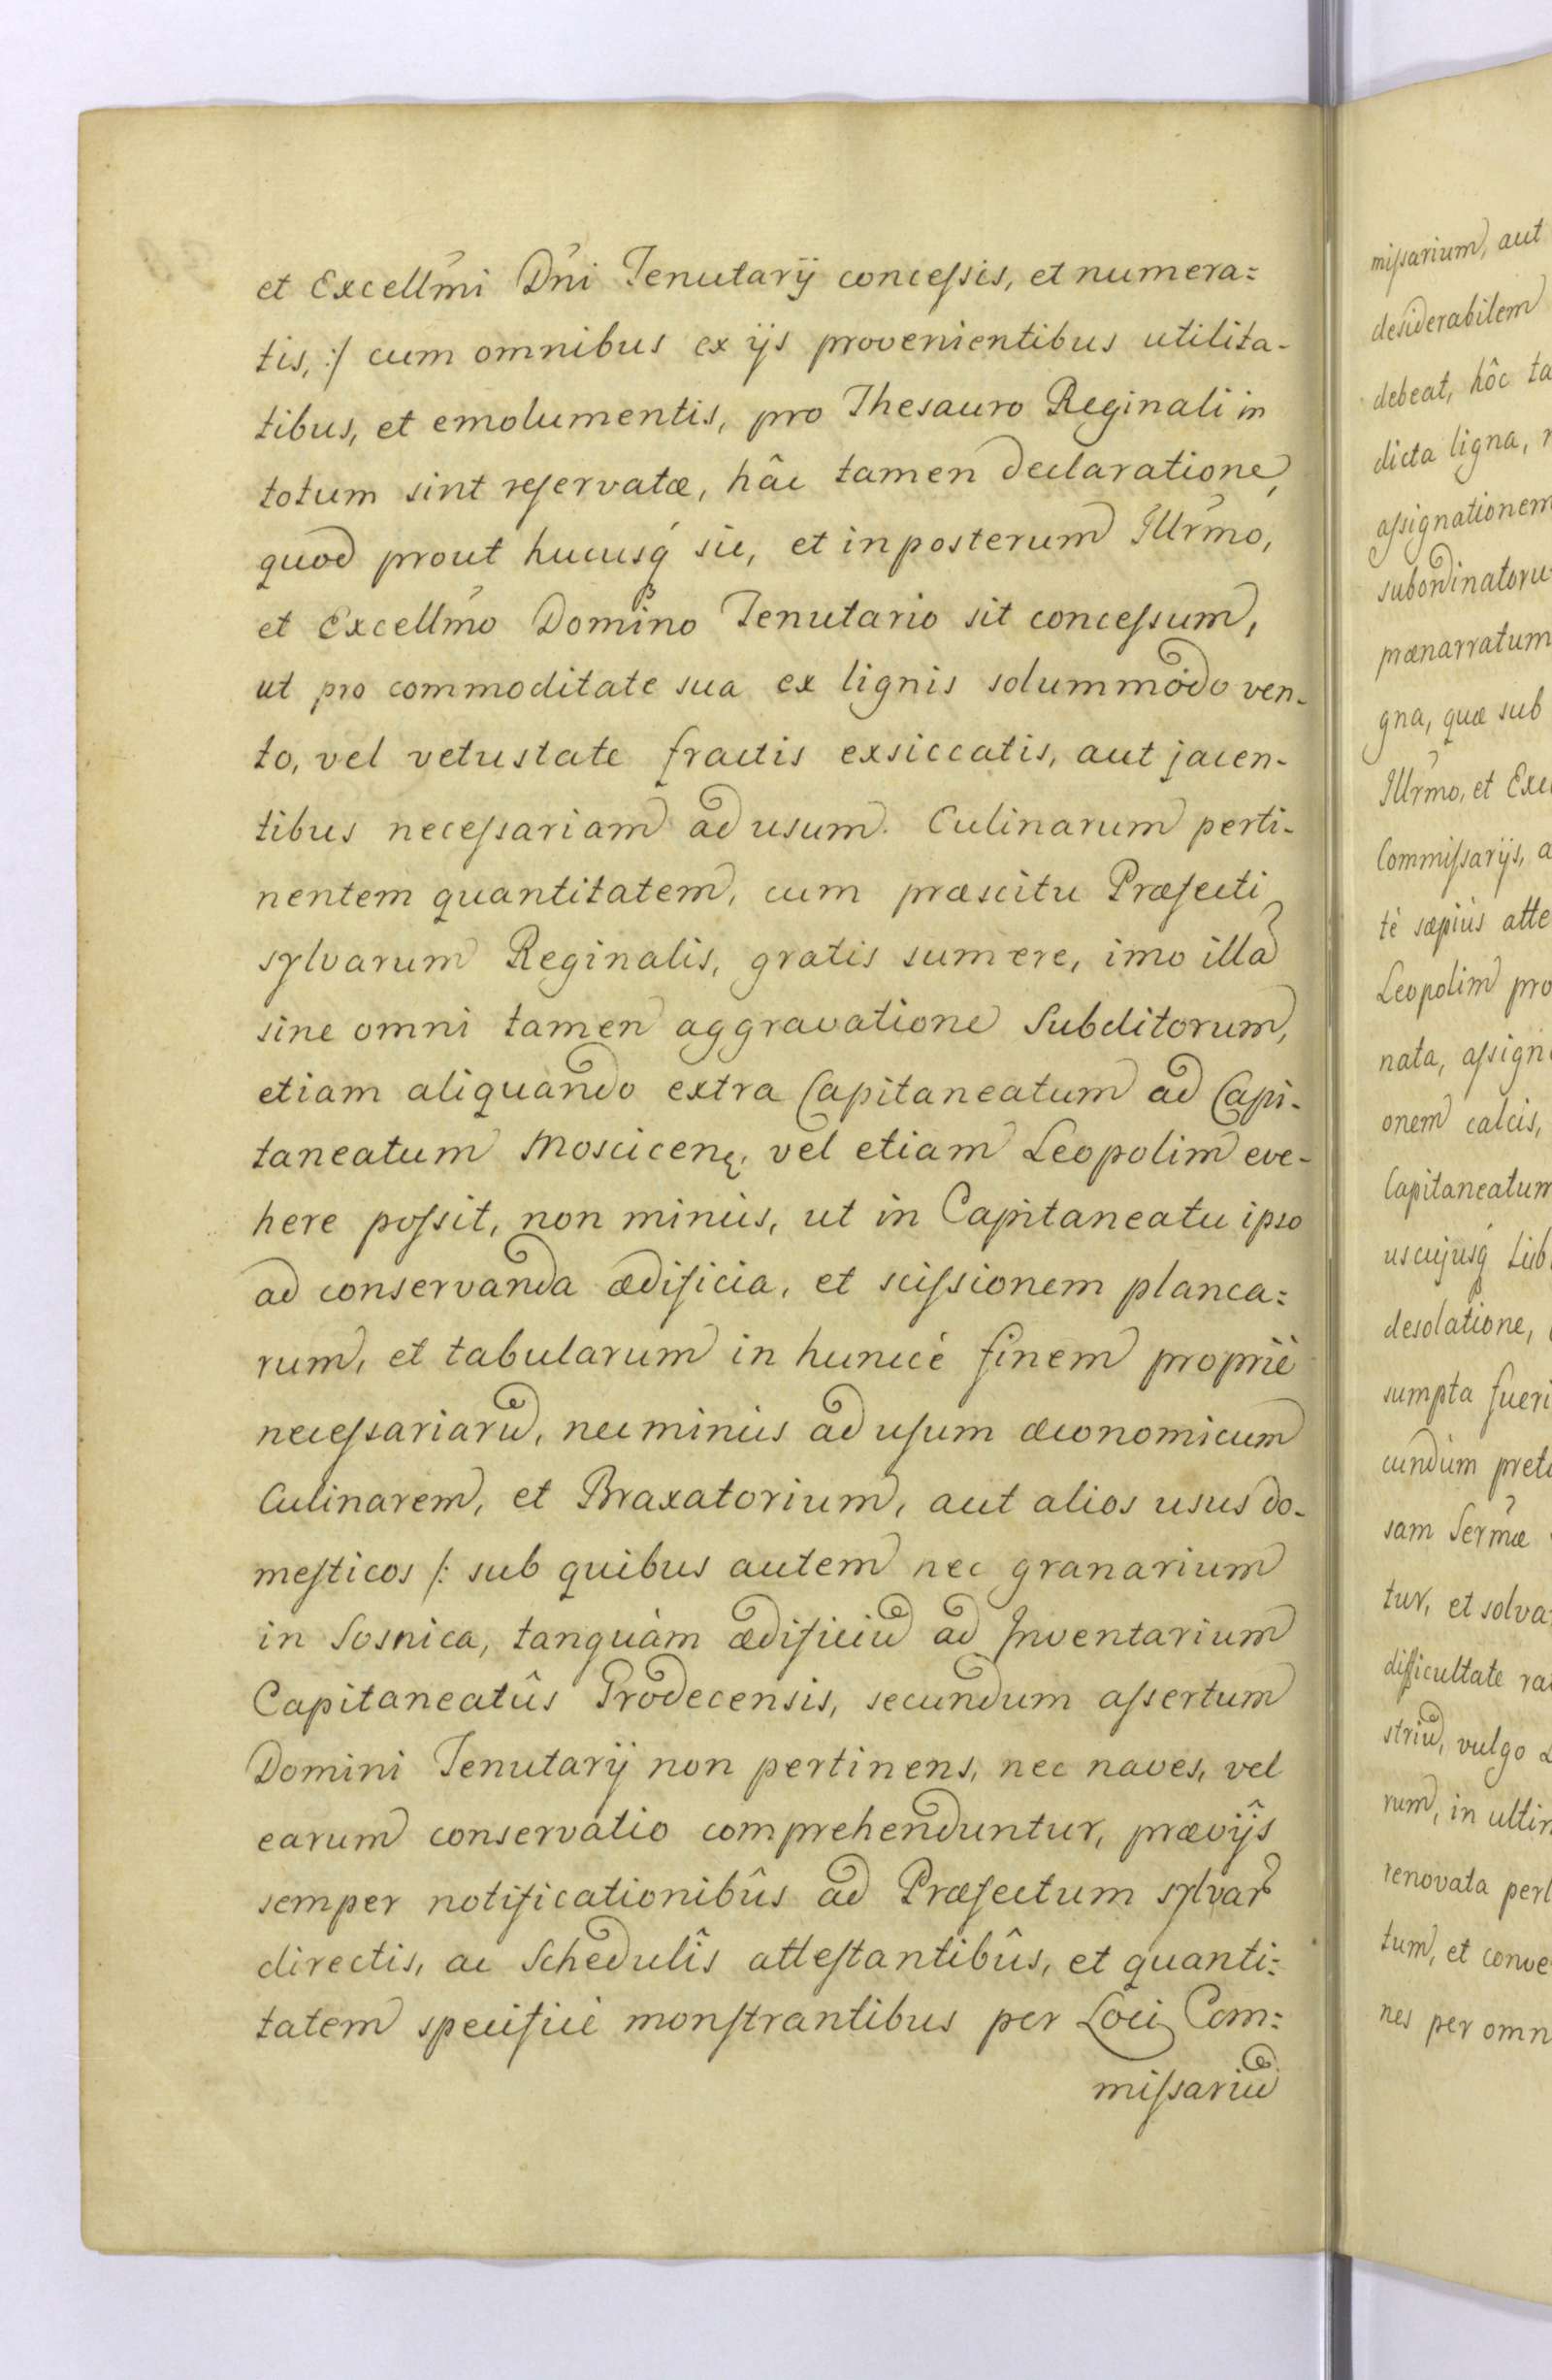 et Excellm̃i Dñi Tenutarij concessis, et numera=
tis, :/ cum omnibus ex ijs provenientibus utilita-
tibus, et emolumentis, pro Thesauro Reginali in
totum sint reservatæ, hâc tamen declaratione,
quod prout hucusq́ sic, et in posterum Illrm̃o,
et Excellm̃o Domino Tenutario sit concessum,
ut pro commoditate sua ex lignis solummodo ven-
to, vel vetustate fractis exsiccatis, aut jacen-
tibus necessariam ad usum Culinarum perti-
nentem quantitatem, cum præscitu Præfecti
sylvarum Reginalis, gratis sumere, imo illa
sine omni tamen aggravatione Subditorum,
etiam aliquando extra Capitaneatum ad Capi-
taneatum Moscicenę, vel etiam Leopolim eve-
here possit, non minùs, ut in Capitaneatu ipso
ad conservanda ædificia, et scissionem planca=
rum, et tabularum in huncce finem propriè
necessariarũ, nec minùs ad usum œconomicum
Culinarem, et Braxatorium, aut alios usus do-
mesticos /: sub quibus autem nec granarium
in Sosnica, tanquàm ædificiũ ad Inventarium
Capitaneatûs Prodecensis, secundum assertum
Domini Tenutarij non pertinens, nec naves, vel
earum conservatio comprehenduntur, prævijs
semper notificationibûs ad Præfectum sylvar
directis, ac Schedulîs attestantibûs, et quanti=
tatem specificè monstrantibus per Loci Com=
missariũ
missarium, aut
desiderabilem
debeat, hôc ta
dicta ligna, n
assignationem
subordinatoru
prænarratum
gna, quæ sub
Illrm̃o, et Exc
Commissarijs, a
tè sæpiùs atte
Leopolim pro
nata, assign
onem calcis,
Capitaneatum
uscujusq́ Sub
desolatione,
sumpta fueri
cundùm preti
sam Serm̃æ
tur, et solva
difficultate ra
striũ, vulgo
rum, in ultim
renovata perl
tum, et conve
nes per omn